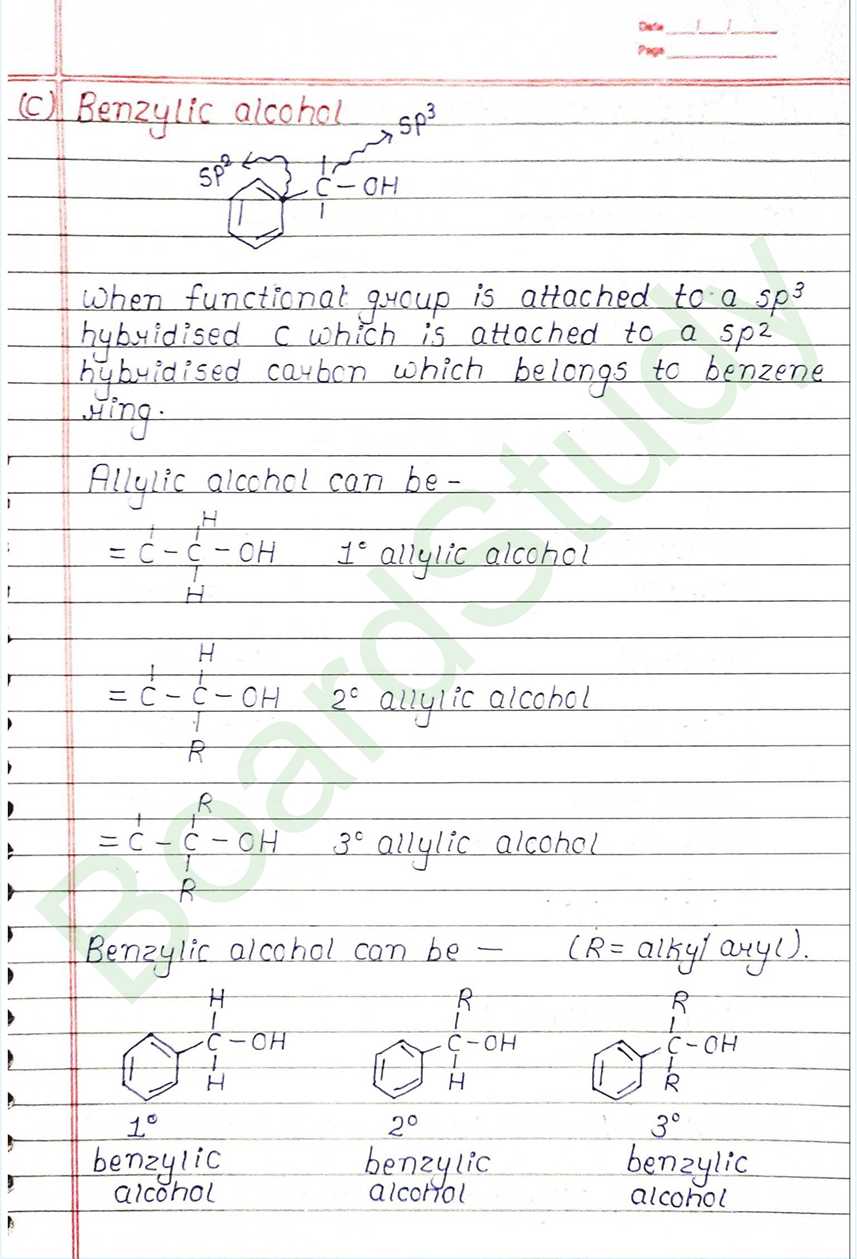 Date __/__/____
Page ________
(C) Benzylic alcohol
sp³
sp²
C - OH
When functional group is attached to a sp³
hybridised C which is attached to a sp2
hybridised carbon which belongs to benzene
ring.
Allylic alcohol can be -
H
= C - C - OH 1° allylic alcohol
H
H
= C - C - OH 2° allylic alcohol
R
R
= C - C - OH 3° allylic alcohol
R
Benzylic alcohol can be - (R = alkyl aryl).
H R R
C - OH C - OH C - OH
H H R
1° 2° 3°
benzylic benzylic benzylic
alcohol alcohol alcohol
BoardStudy